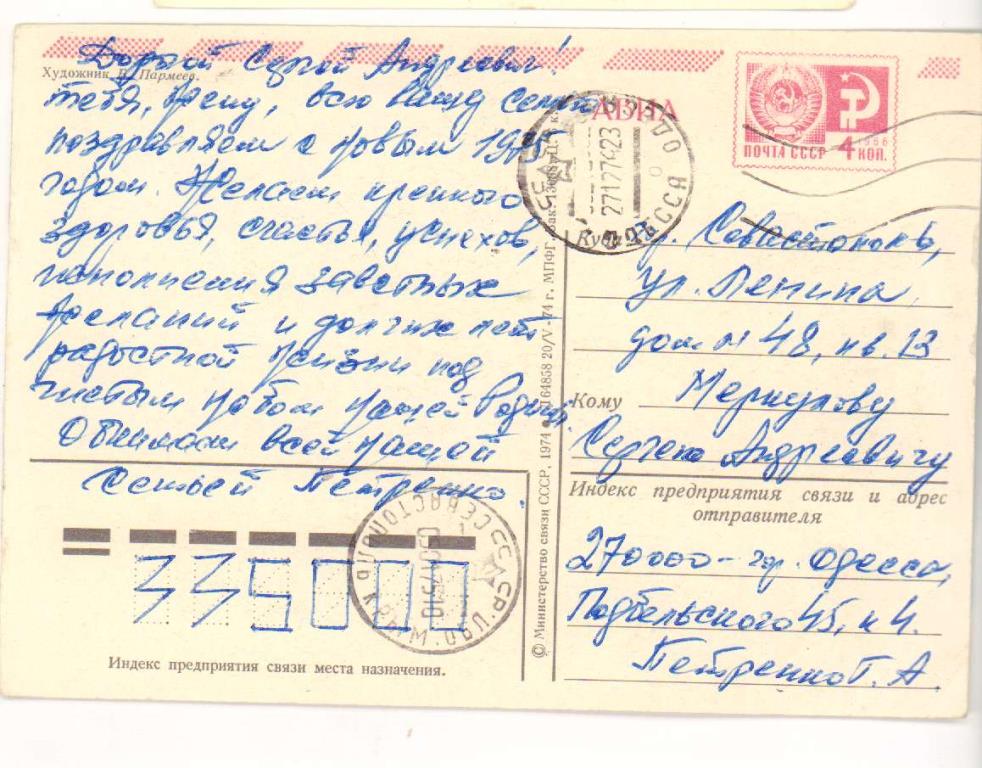 Художник В. Пармеев.
Дорогой Сергей Андреевич!
тебя, Жену, всю вашу семью
поздравляем с Новым 1975
годом. Желаем крепкого
здоровья, счастья, успехов,
исполнения заветных
желаний и долгих лет
радостной жизни под
чистым небом нашей Родины.
Обнимаем всей нашей
семьей Петренко.
АВИА
ПОЧТА СССР 4 КОП.
1966
ОДЕССА
271274 23
Куда
г. Севастополь,
ул. Ленина
дом № 48, кв. 13
Кому
Меркулову
Сергею Андреевичу
Индекс предприятия связи и адрес
отправителя
270000 - гор. Одесса,
Подбельского 45, к 4.
Петренко Г. А.
© Министерство связи СССР, 1974
164858 20/V-74 г. МПФГ.
СССР СЕВАСТОПОЛЬ КРЫМ. ОБЛ.
335000
Индекс предприятия связи места назначения.